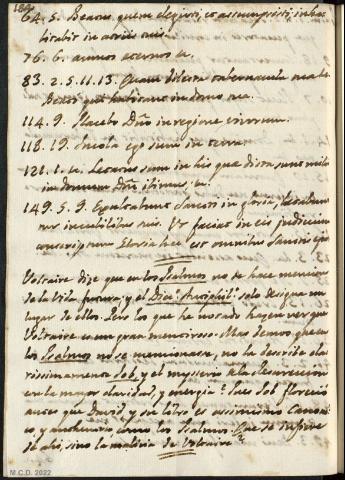 184.
64. 5. Beatus, quem elegisti, et assumpsisti; inha-
bitabit in atriis tuis.
76. 6. annos eternos &.
83. 2. 5. 11. 13. Quam dilecta tabernacula tua &.
Beati qui habitant in domo tua.
114. 9. Placebo Dño in regione vivorum.
118. 19. Incola ego sum in terra.
121. 1. &. Letatus sum in his que dicta sunt mihi
in domum Dñi ibimus, &.
149. 5. 9. Exultabunt Sancti in gloria, letabun-
tur in cubilibus suis. Ut faciant in eis judicium
conscriptum Gloria hec est omnibus Sanctis ejus
Voltaire dize que en los Psalmos no se hace mencion
de la Vida futura; y el Dicc. Antiphil. solo designa un
lugar de ellos. Pero los que he notado hazen ver que
Voltaire es un gran mentiroso. Mas demos que en
los Psalmos no se mencionase, no la describe cla-
rissimamente Job, y el mysterio de la Resurreccion
con la mayor claridad, y energia? Pues Job floreció
antes que David, y su libro es assimismo Canoni-
co, y authentico como los Psalmos. Que se infiere
de ahi, sino la malicia de Voltaire?
M.C.D. 2022